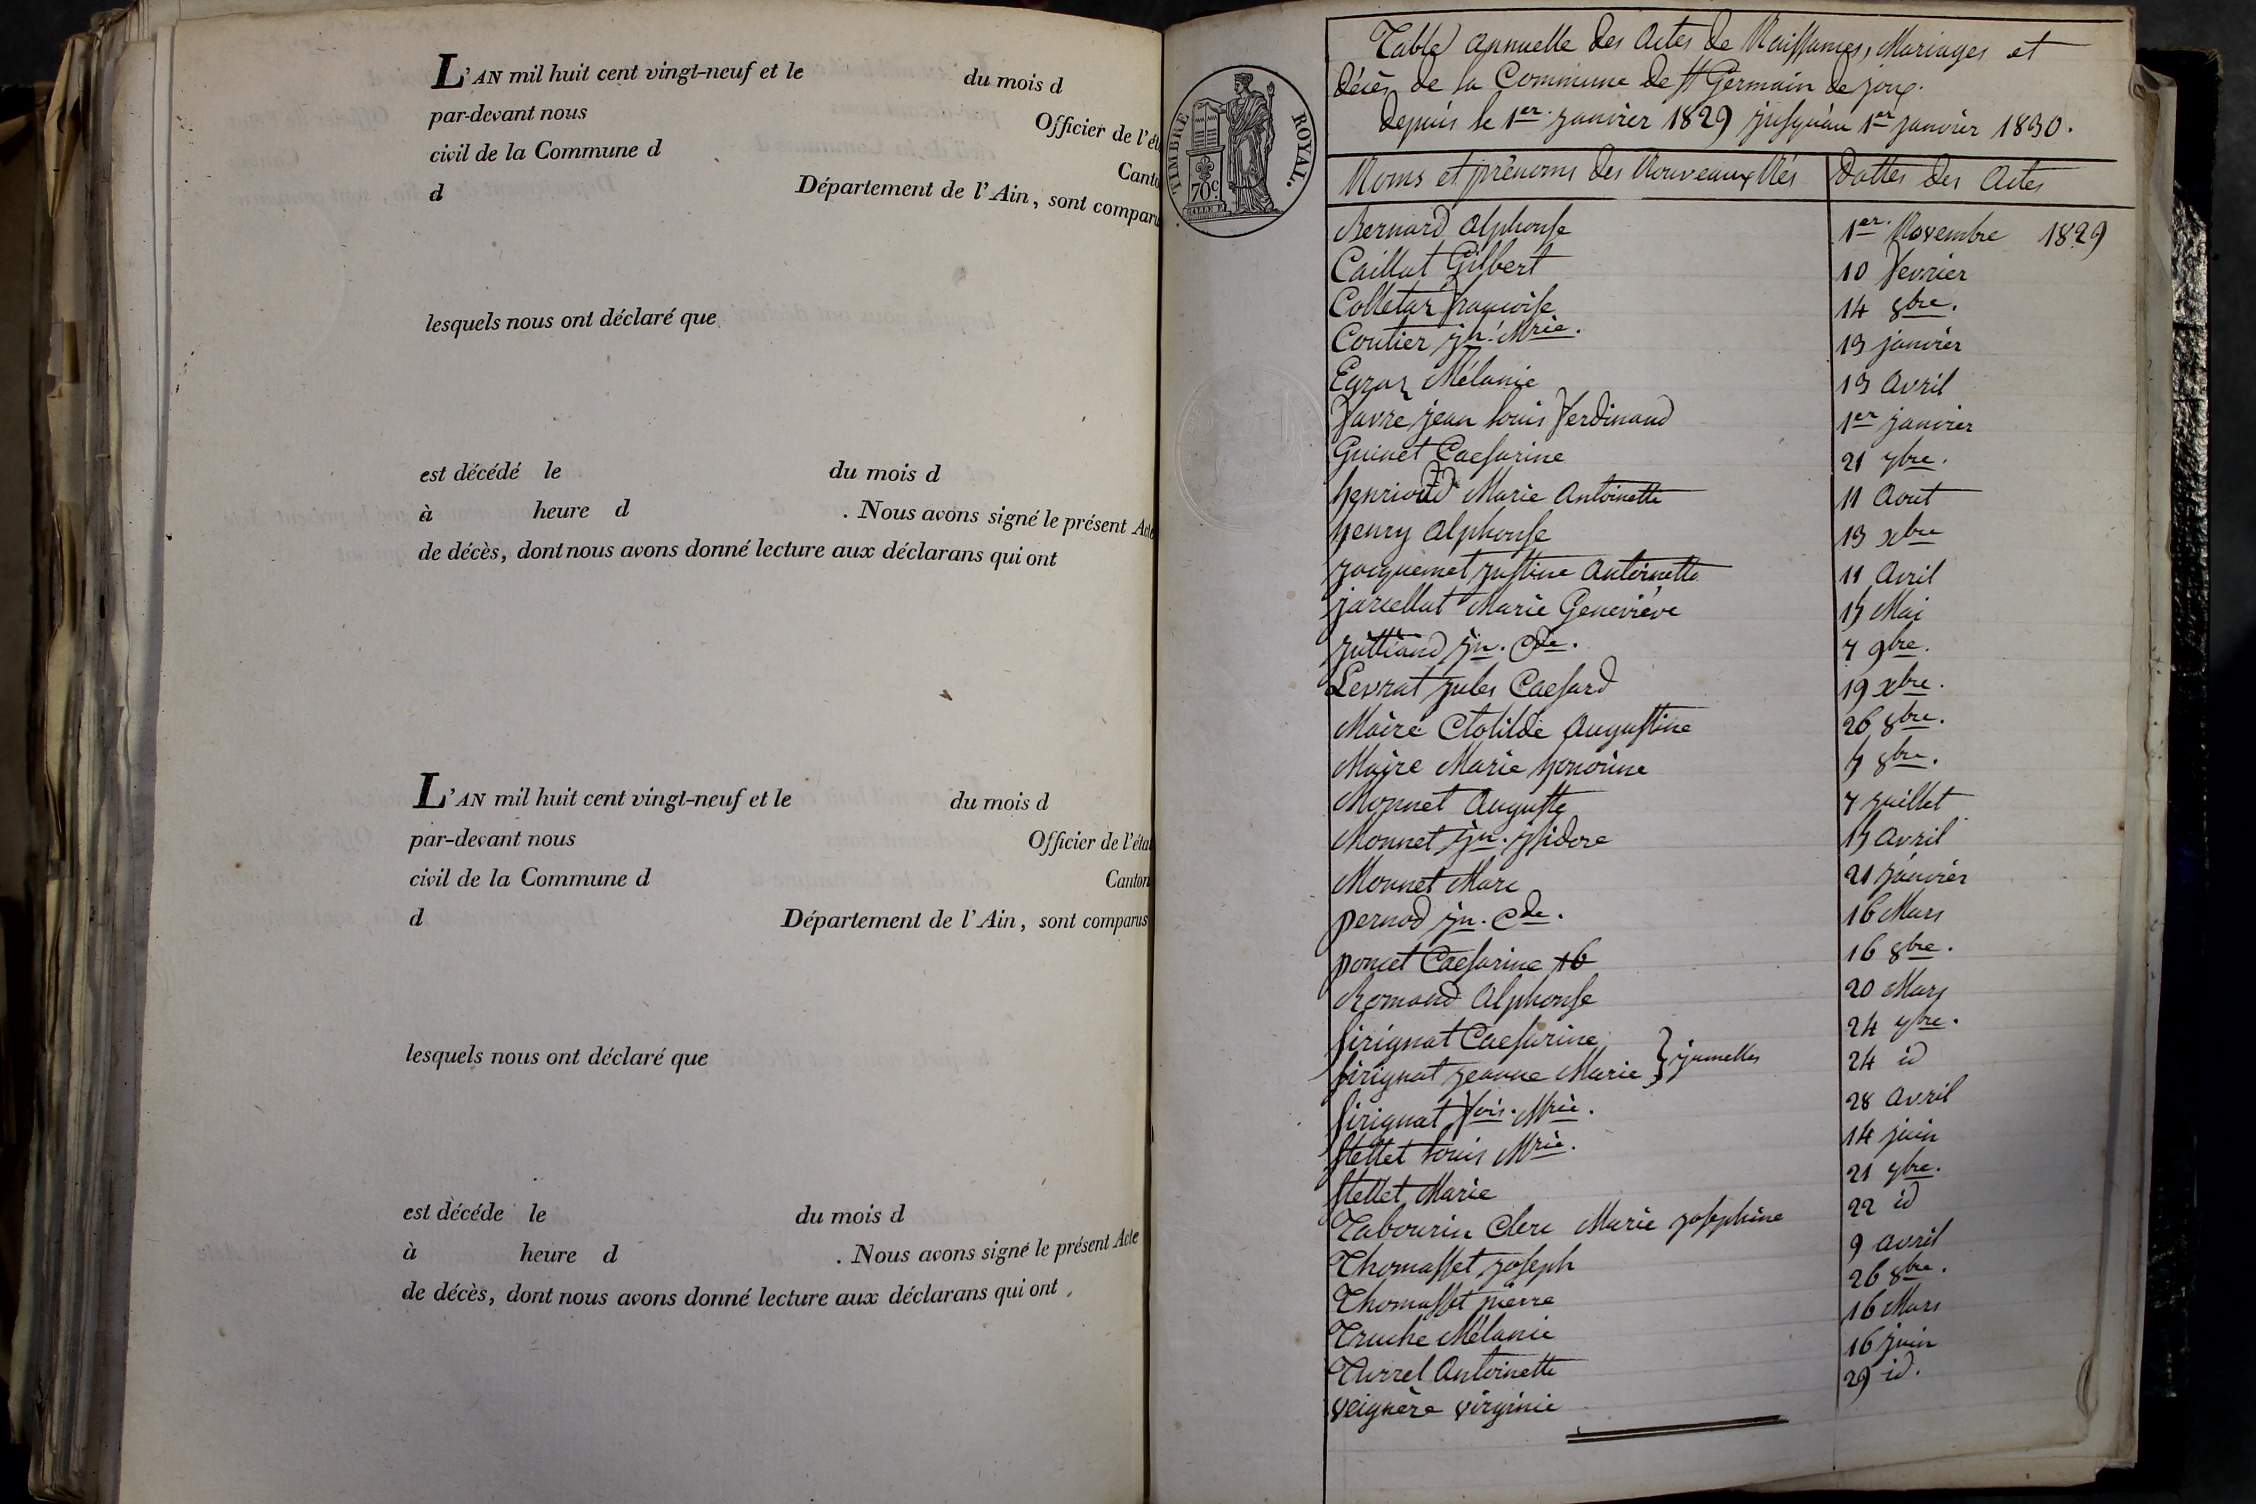 L'AN mil huit cent vingt-neuf et le du mois d
par-devant nous Officier de l'ét
civil de la Commune d Canto
d Département de l'Ain, sont comparu
lesquels nous ont déclaré que
est décédé le du mois d
à heure d . Nous avons signé le présent Acte
de décès, dont nous avons donné lecture aux déclarans qui ont
L'AN mil huit cent vingt-neuf et le du mois d
par-devant nous Officier de l'état
civil de la Commune d Canton
d Département de l'Ain, sont comparus
lesquels nous ont déclaré que
est décéde le du mois d
à heure d . Nous avons signé le présent Acte
de décès, dont nous avons donné lecture aux déclarans qui ont
TIMBRE ROYAL.
70c.
Table annuelle des Actes de Naissances, Mariages et
décès de la Commune de St Germain de joux.
Depuis le 1er janvier 1829 jusqu'au 1er janvier 1830.
Noms et prénoms des Nouveaux Nés Dattes des Actes
Bernard Alphonse 1er Novembre 1829
Caillat Gilbert 10 fevrier
Colletaz françoise 14 8bre.
Coutier jn. Mrie. 13 janvier
Mélanie 13 Avril
favre jean Louis ferdinand 1er janvier
Guinet Caesarine 21 7bre.
henrioud Marie Antoinette 11 Aout
henry Alphonse 13 xbre
jacquemet justine Antoinette 11 Avril
jarcellat Marie Geneviéve 15 Mai
juilliand jn. Cde. 7 9bre.
Levrat jules Caesard 19 xbre.
Maire Clotilde Augustine 26 8bre.
Maire Marie honorine 5 8bre.
Monnet Auguste 7 juillet
Monnet jn. isidore 15 avril
Monnet Marc 21 janvier
pernod jn. Cde. 16 Mars
poncet Caesarine 16 16 8bre.
Romand Alphonse 20 Mars
sirignat Caesarine 24 7bre.
sirignat jeanne Marie } jumelles 24 id
sirignat fois. Mrie. 28 avril
stellet Louis Mrie. 14 juin
stellet Marie 21 7bre.
Tabourin Clerc Marie josephine 22 id
Thomasset joseph 9 avril
Thomasset pierre 26 8bre.
Truche Mélanie 16 Mars
Turrel Antoinette 16 juin
veignère virginie 29 id.